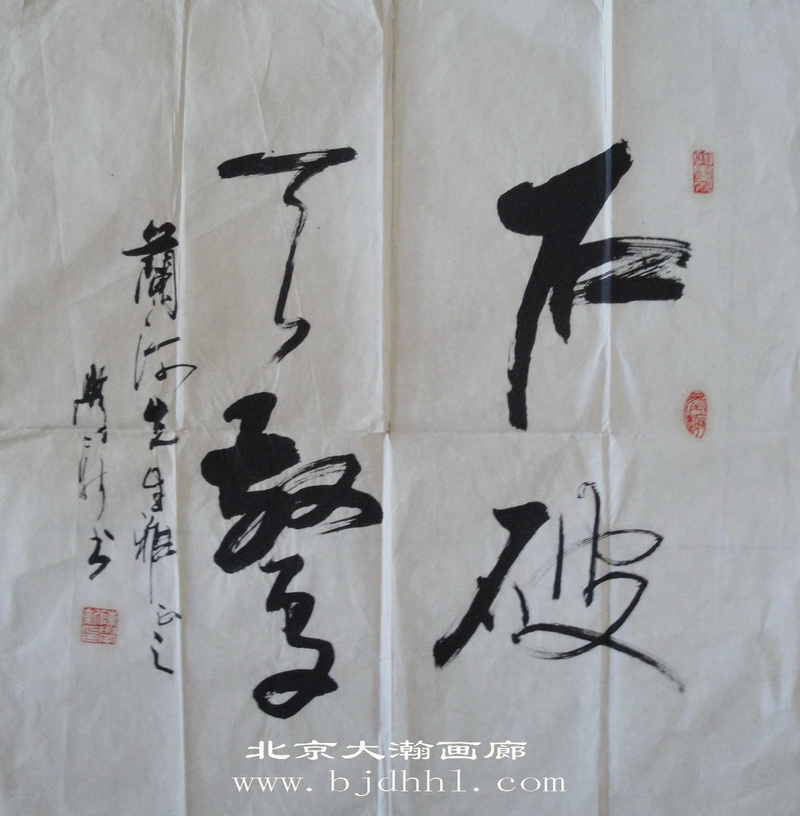 石破
天驚
蘭河先生雅正之
北京大瀚画廊
www.bjdhhl.com